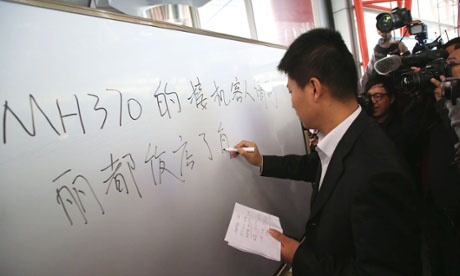 MH370 的接机客人请
丽都饭店了